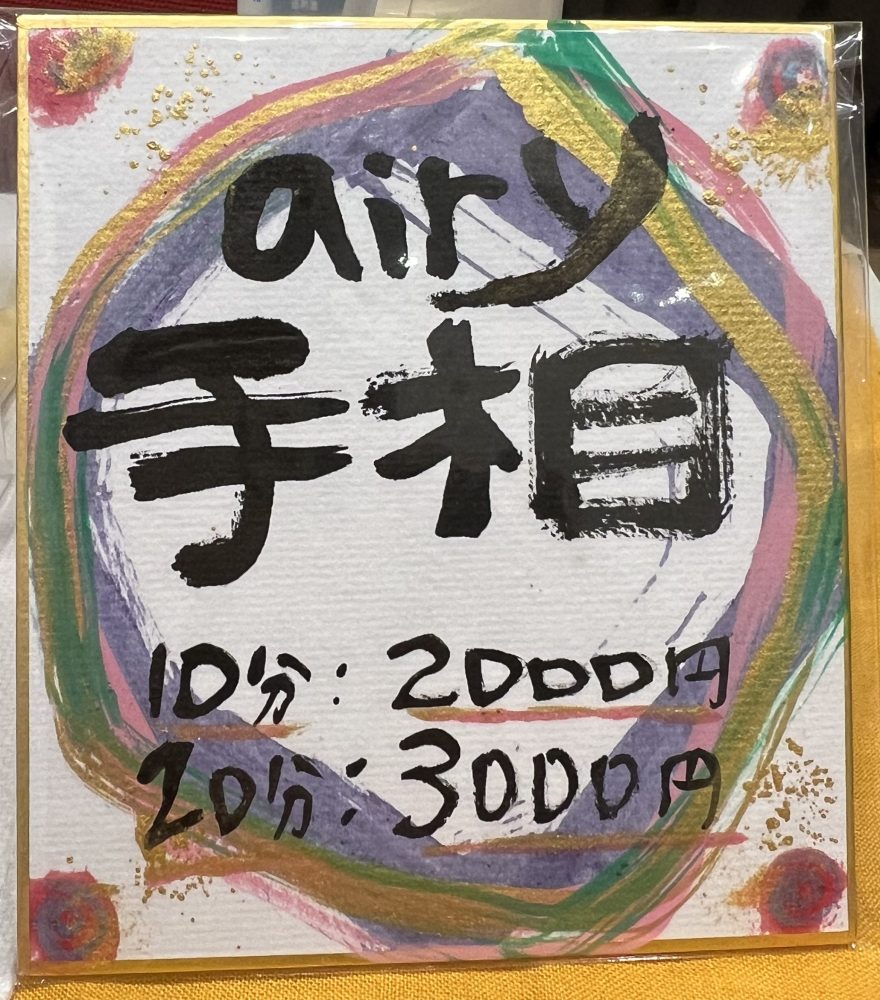 airy
手相
10分:2000円
20分:3000円